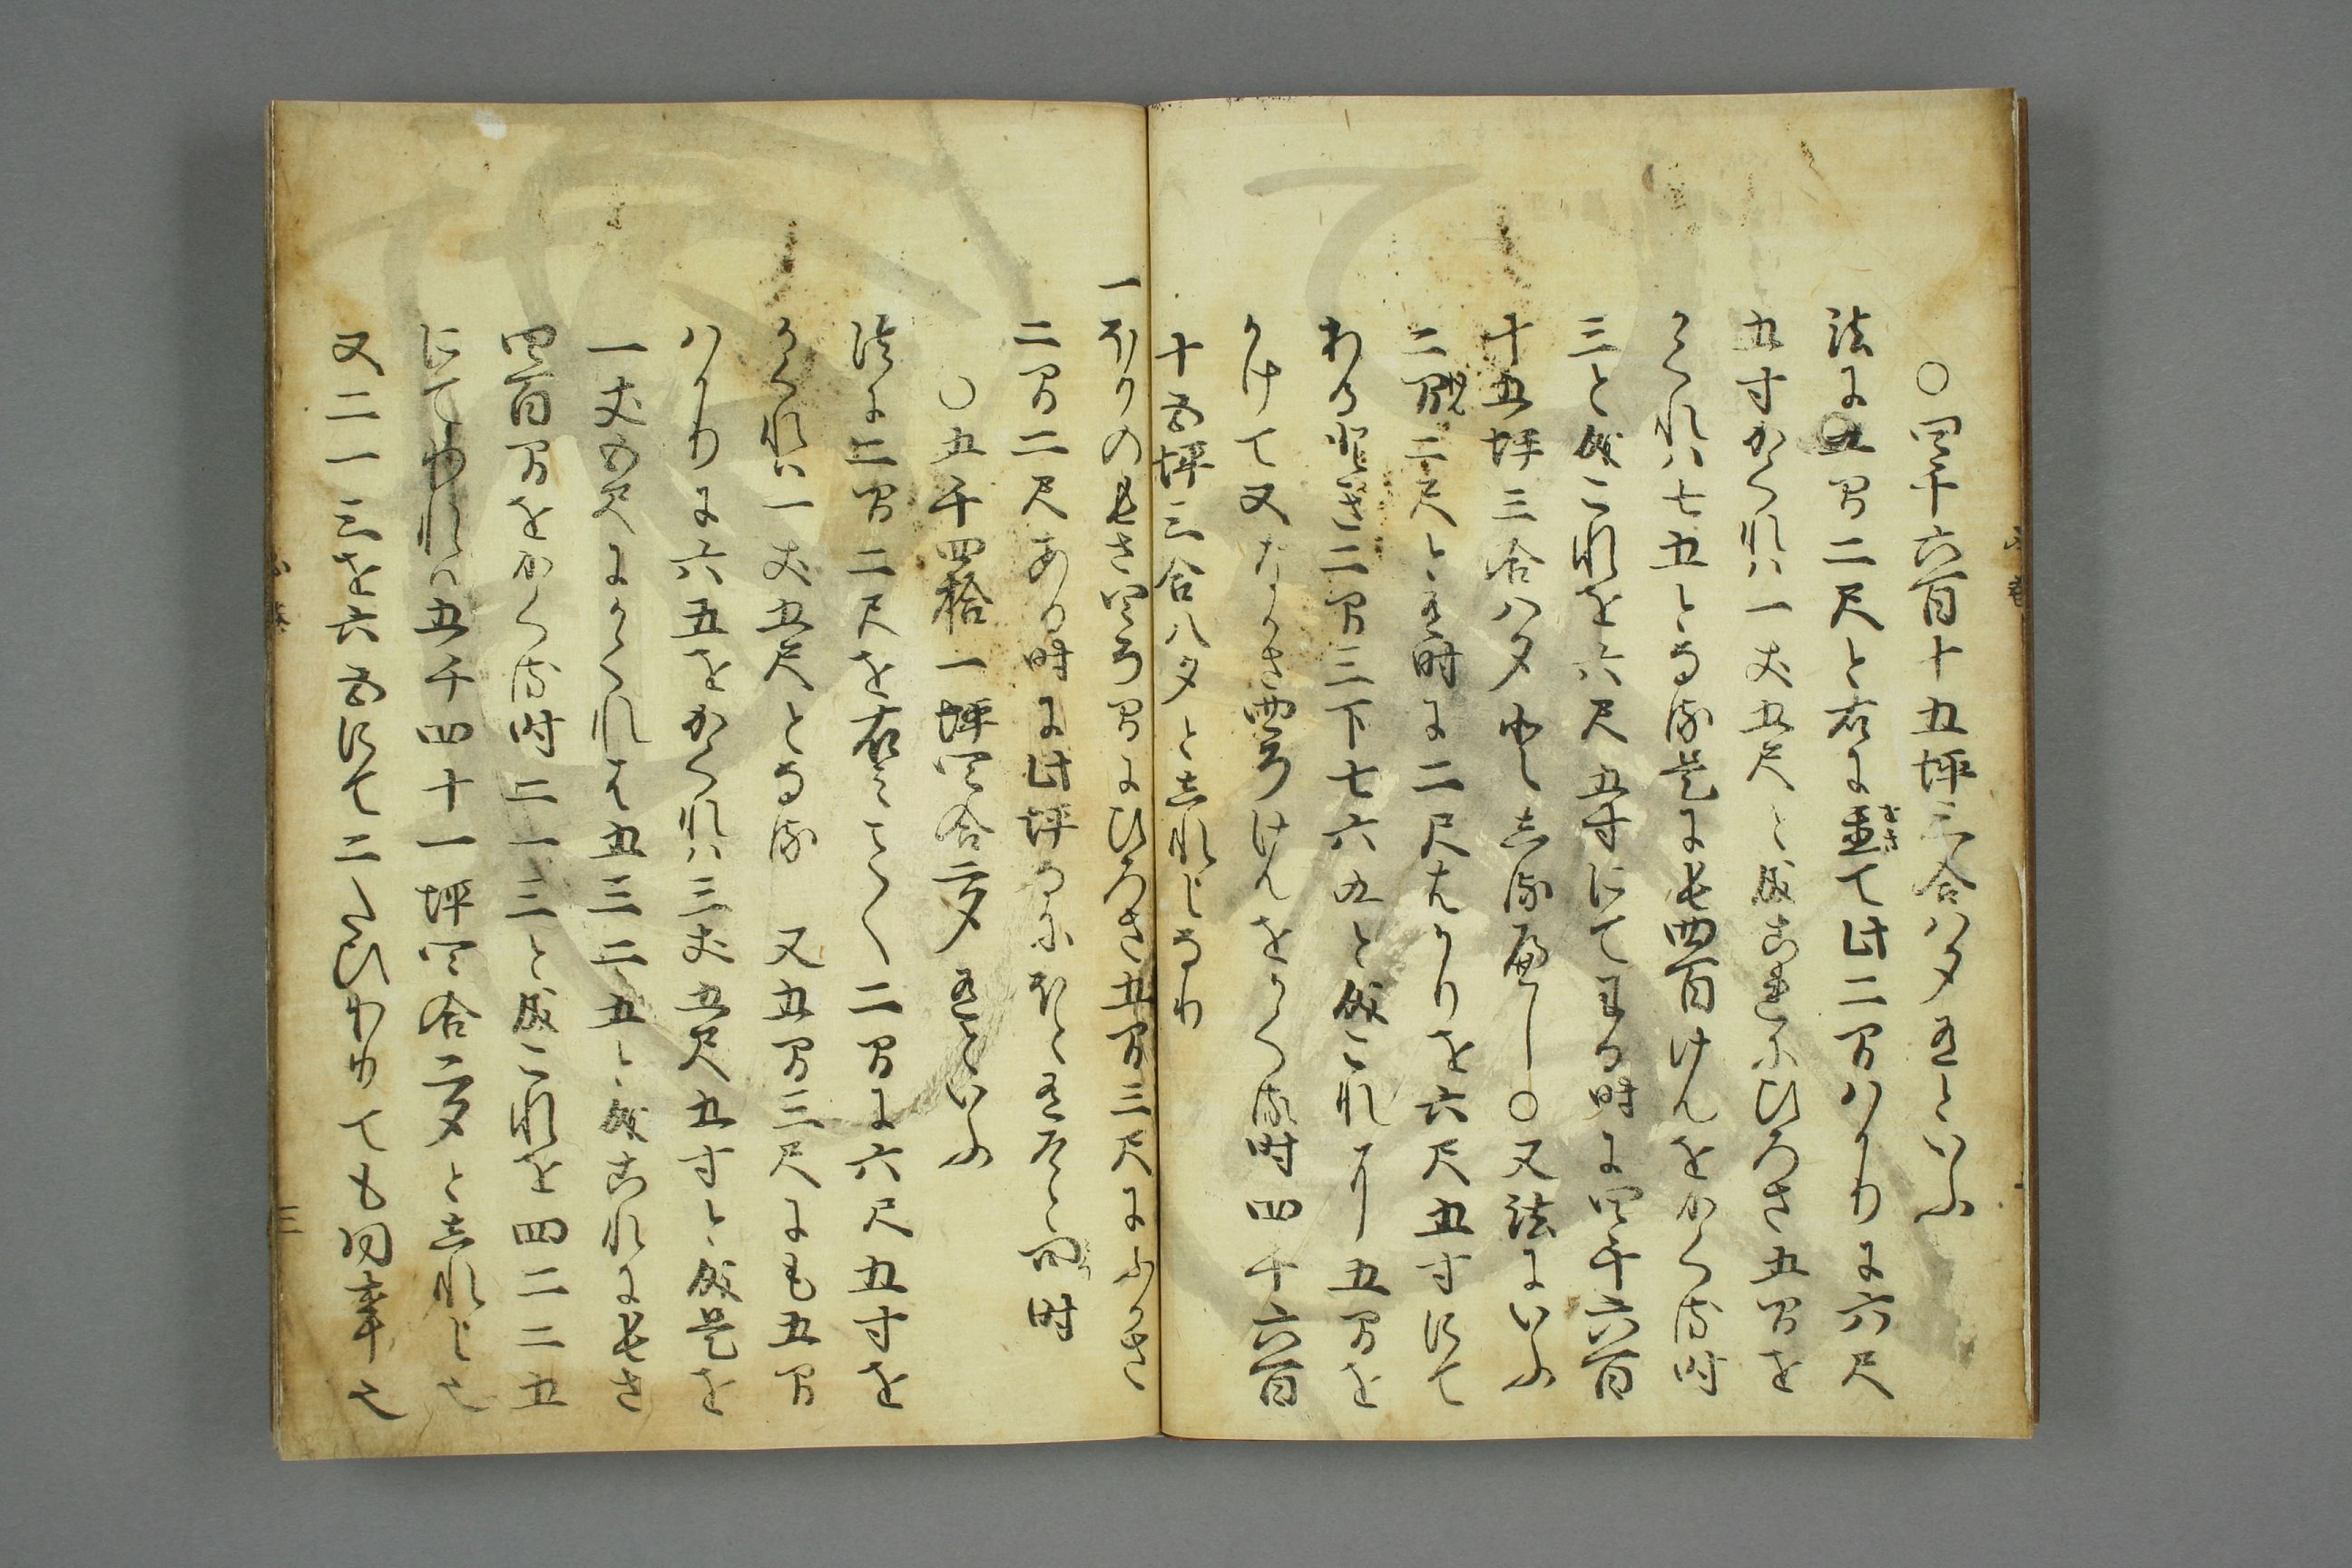 〇四千六百十五坪三合八夕五といふ
法に五間二尺と右に置て此二間ハかりに六尺
五寸かくれハ一丈五尺と成
ひろさ五間を
かくれハ七五となる是に
四百けんをかくる時
三と成これを六尺五寸にてわる時に四千六百
十五坪三合八夕
しるへし〇又法にいふ
二間二尺と云時に二尺はかりを六尺五寸にて
わる
二間三下七六五と成これより五間を
かけて又なかさ四百けんをかくる時四千六百
十五坪三合八夕としれしなり
一ほりの長さ四百間にひろさ五間三尺にふかさ
二間二尺ある時に此坪
なにほと有そと問時
〇五千四拾一坪四合二夕五といふ
法に二間二尺を右にをく二間に六尺五寸を
かくれハ一丈五尺となる 又五間三尺にも五間
ハかりに六五をかくれハ三丈五尺五寸と成是を
一丈五尺にかくれは五三二五と成これに長さ
四百間をかくる時二一三と成これを四二二五
にてわれハ五千四十一坪四合二夕としれし也
又二一三を六五にて二たひわりても同事也
三